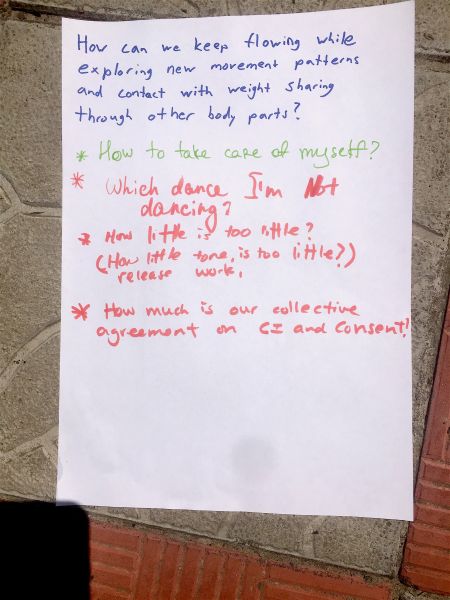 How can we keep flowing while
exploring new movement patterns
and contact with weight sharing
through other body parts?
* How to take care of myself?
* Which dance I'm Not
dancing?
* How little is too little?
(How little tone, is too little?)
release work.
* How much is our collective
agreement on CI and Consent?